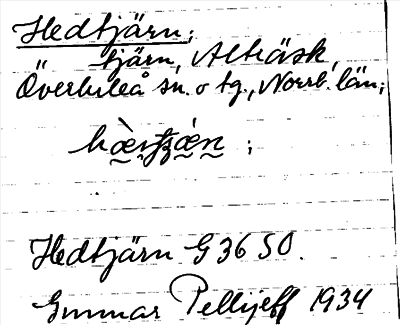 Hedtjärn;
tjärn, Alträsk,
Överluleå sn. o tg., Norrb. län;
Hedtjärn G 36 SO.
Gunnar Pellijeff 1934